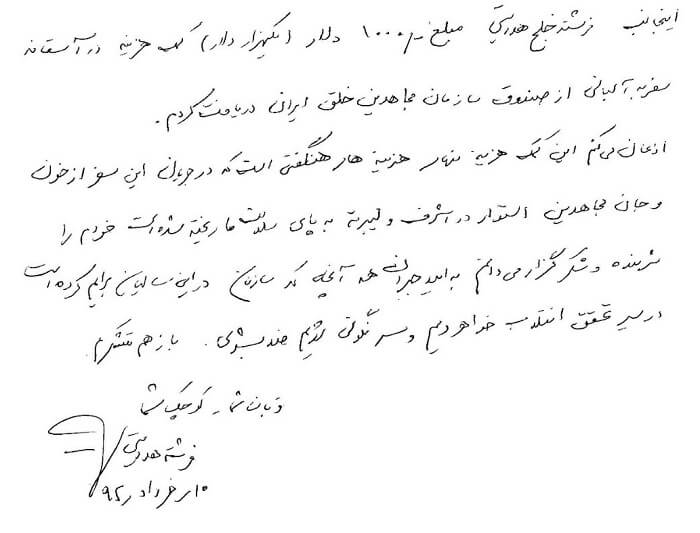 اینجانب فرشته خلج هدایتی مبلغ ۱۰۰۰ دلار (یکهزار دلار) کمک هزینه در آستانه
سفر به آلبانی از صندوق سازمان مجاهدین خلق ایران دریافت کردم.
اذعان می‌کنم این کمک هزینه منهای هزینه های هنگفتی است که در جریان این سفر از خون
و جان مجاهدین استوار در اشرف و لیبرتی به پای سلامت ما ریخته شده است خودم را
شرمنده و شکرگزار می‌دانم به امید جبران همه آنچه که سازمان در این سالیان برایم کرده است
در مسیر تحقق انقلاب خواهر مریم و سرنگونی رژیم ضد بشری. باز هم متشکرم.
قربان شما - کوچک شما
فرشته هدایتی
۱۰ر خرداد ر۹۲